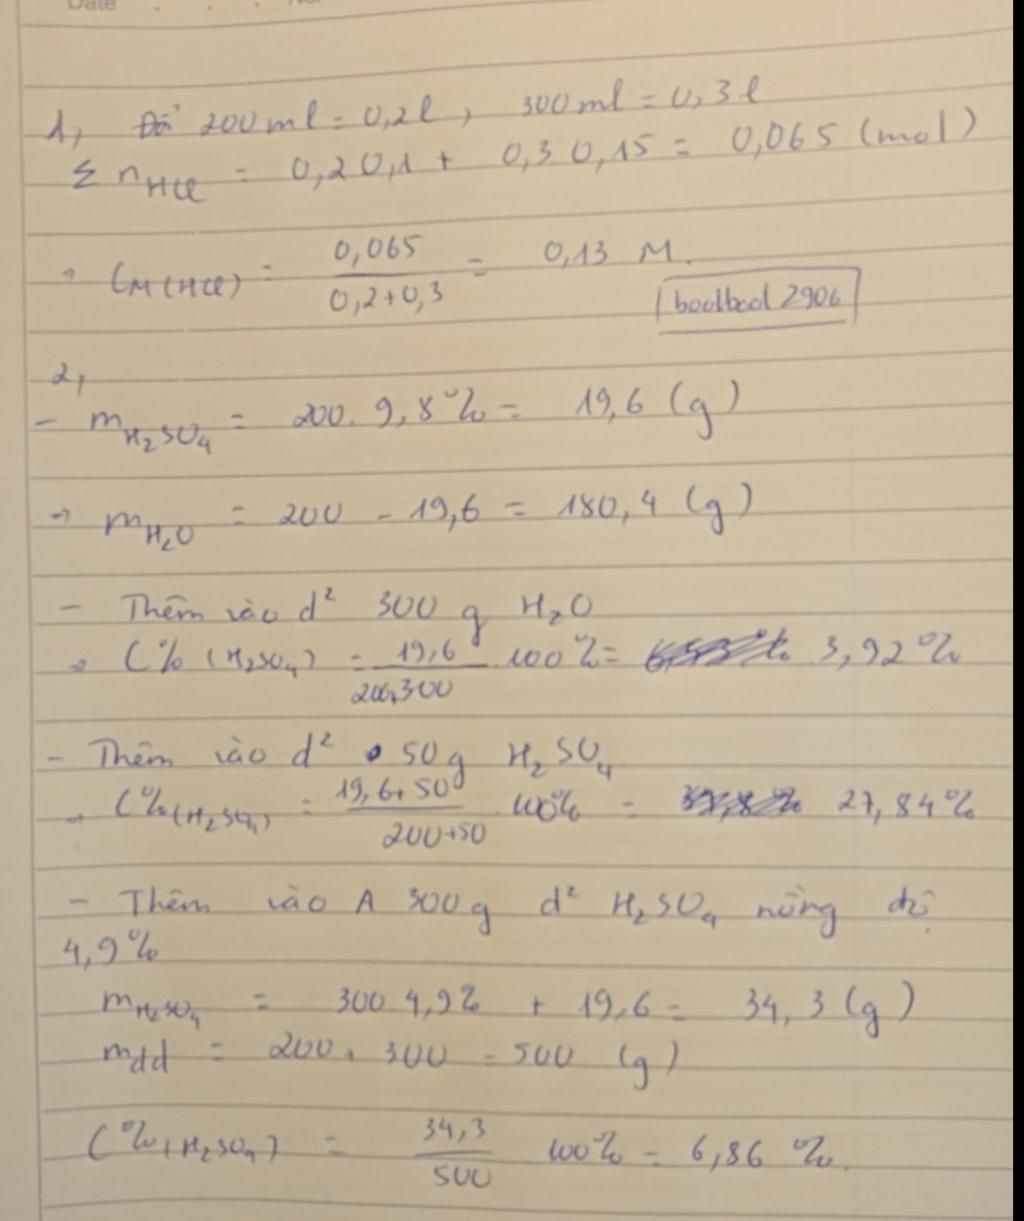 Date . . . No.
1, Đổi 200ml = 0,2l, 300ml = 0,3l
Σ nHCl = 0,2.0,1 + 0,3.0,15 = 0,065 (mol)
→ CM(HCl) = 0,065 / 0,2+0,3 = 0,13 M.
boolbool 2906
2,
- mH₂SO₄ = 200. 9,8% = 19,6 (g)
→ mH₂O = 200 - 19,6 = 180,4 (g)
- Thêm vào d² 300 g H₂O
→ C% (H₂SO₄) = 19,6 / 200+300 . 100% = 3,92%
- Thêm vào d² 50g H₂SO₄
→ C%(H₂SO₄) = 19,6+50 / 200+50 . 100% = 27,84%
- Thêm vào A 300g d² H₂SO₄ nồng độ
4,9%
mH₂SO₄ = 300.4,9% + 19,6 = 34,3 (g)
mdd = 200 + 300 = 500 (g)
C%(H₂SO₄) = 34,3 / 500 . 100% = 6,86 %.